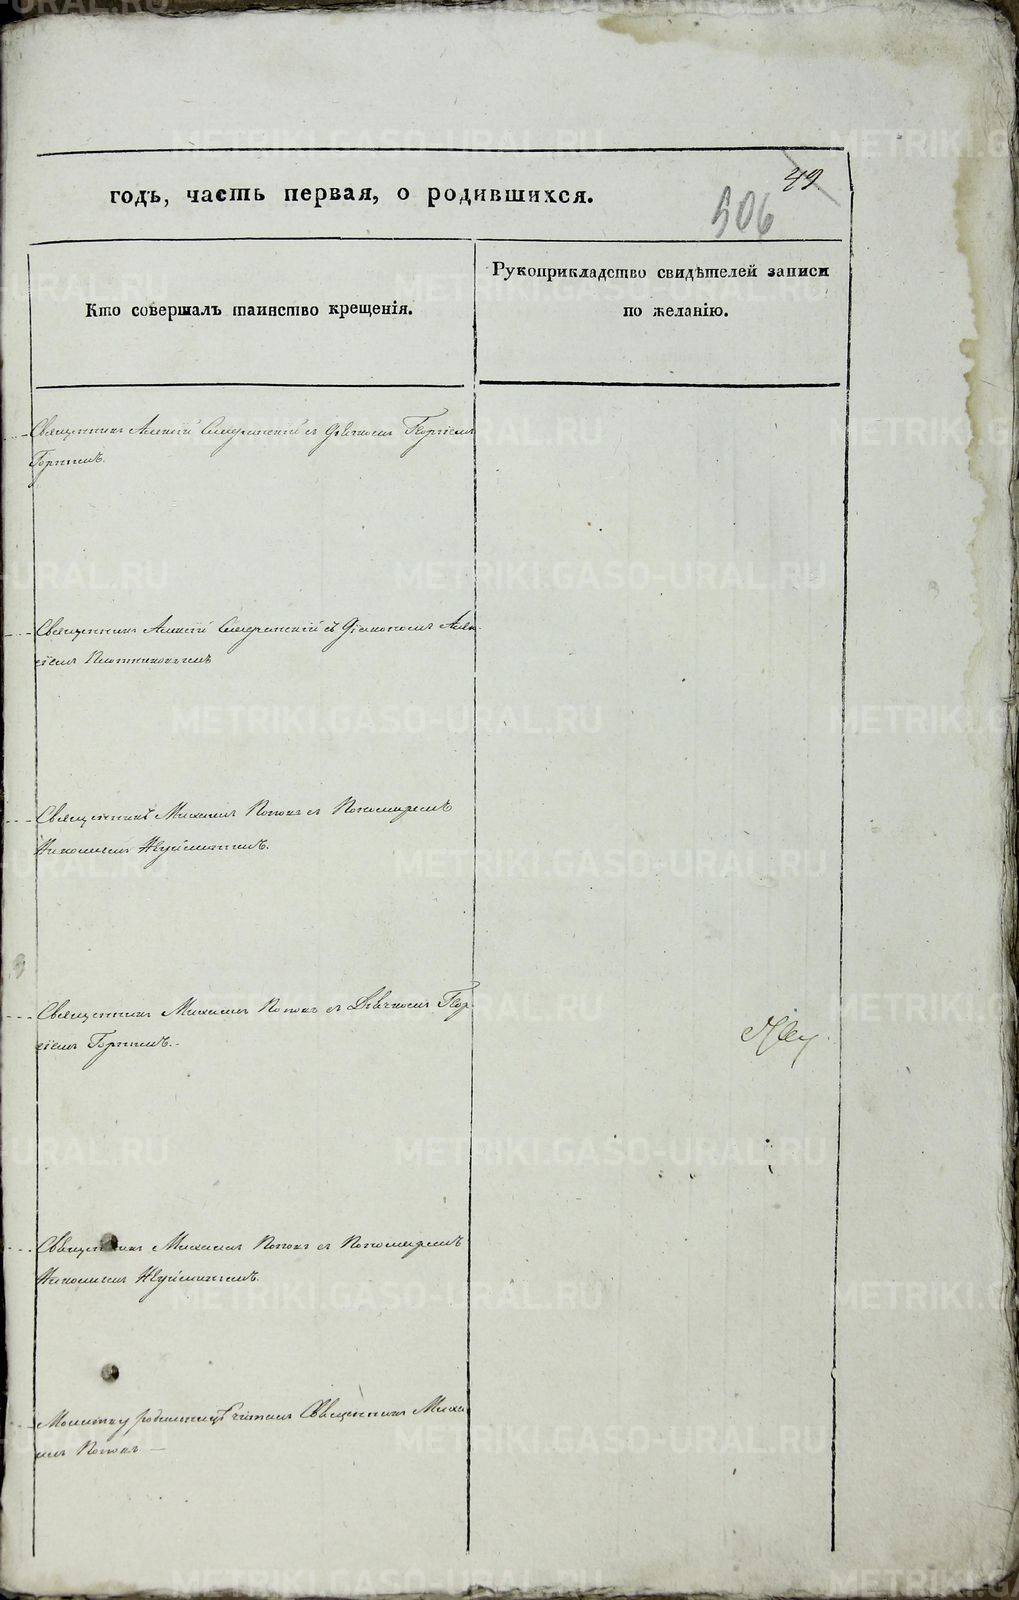 49
годъ, часть первая, о родившихся.
506
Кто совершалъ таинство крещенія.
Рукоприкладство свидѣтелей записи
по желанію.
Священникъ Алексій с Дьячкомъ Георгіемъ
Священникъ Алексій съ Діакономъ Алек-
сіемъ Плотниковымъ
Священникъ Михаилъ Поповъ с Пономаремъ
Николаемъ Неуйминымъ.
Священникъ Михаилъ Поповъ съ Дьячкомъ Геор-
гіемъ
Священникъ Михаилъ Поповъ с Пономаремъ
Николаемъ Неуйминымъ.
Молитву родильницѣ читалъ Священникъ Миха-
илъ Поповъ —
METRIKI.GASO-URAL.RU